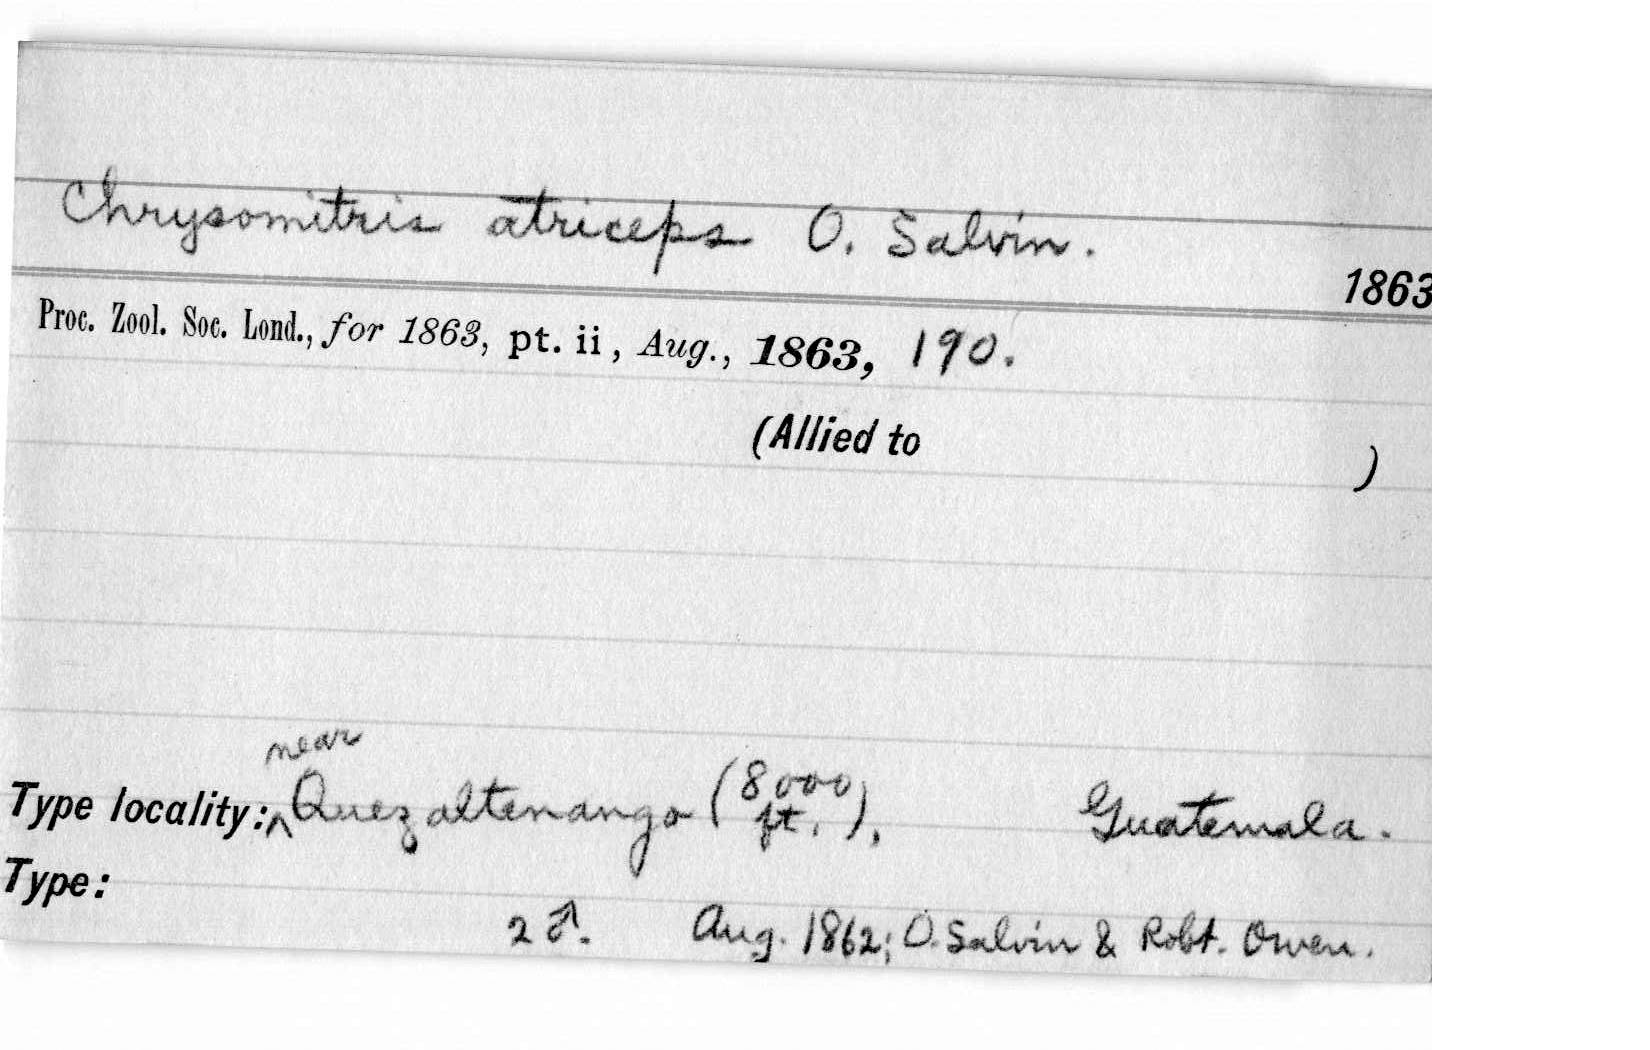 Chrysomitris atriceps O. Salvin.
1863
Proc. Zool. Soc. Lond., for 1863, pt. ii, Aug., 1863, 190.
(Allied to )
near
Type locality: ^ Quezaltenango (8000 ft.), Guatemala.
Type:
2 ♂. Aug. 1862; O. Salvin & Robt. Owen.